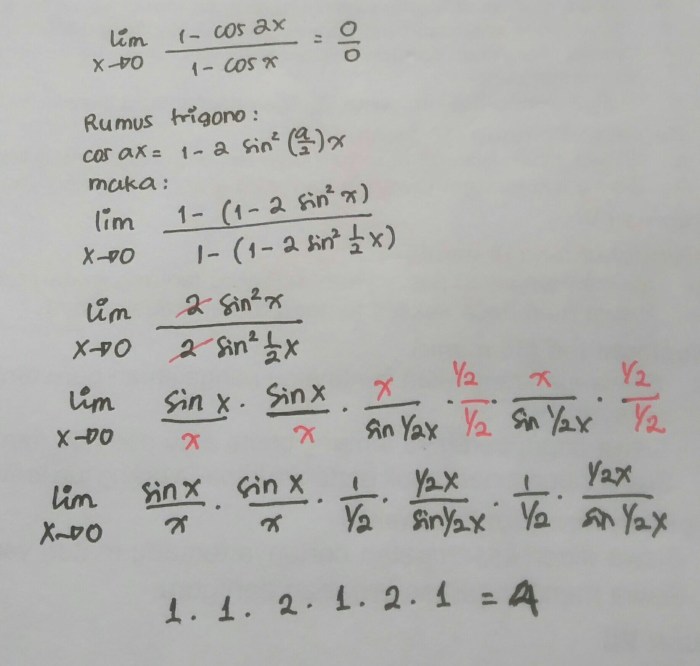 lim x→0 (1 - cos 2x)/(1 - cos x) = 0/0
Rumus trigono :
cos ax = 1 - 2 sin² (a/2) x
maka :
lim x→0 (1 - (1 - 2 sin² x))/(1 - (1 - 2 sin² 1/2 x))
lim x→0 (2 sin² x)/(2 sin² 1/2 x)
lim x→0 (sin x)/x · (sin x)/x · x/(sin 1/2x) · (1/2)/(1/2) · x/(sin 1/2x) · (1/2)/(1/2)
lim x→0 (sin x)/x · (sin x)/x · 1/(1/2) · (1/2x)/(sin 1/2x) · 1/(1/2) · (1/2x)/(sin 1/2x)
1 . 1 . 2 . 1 . 2 . 1 = 4